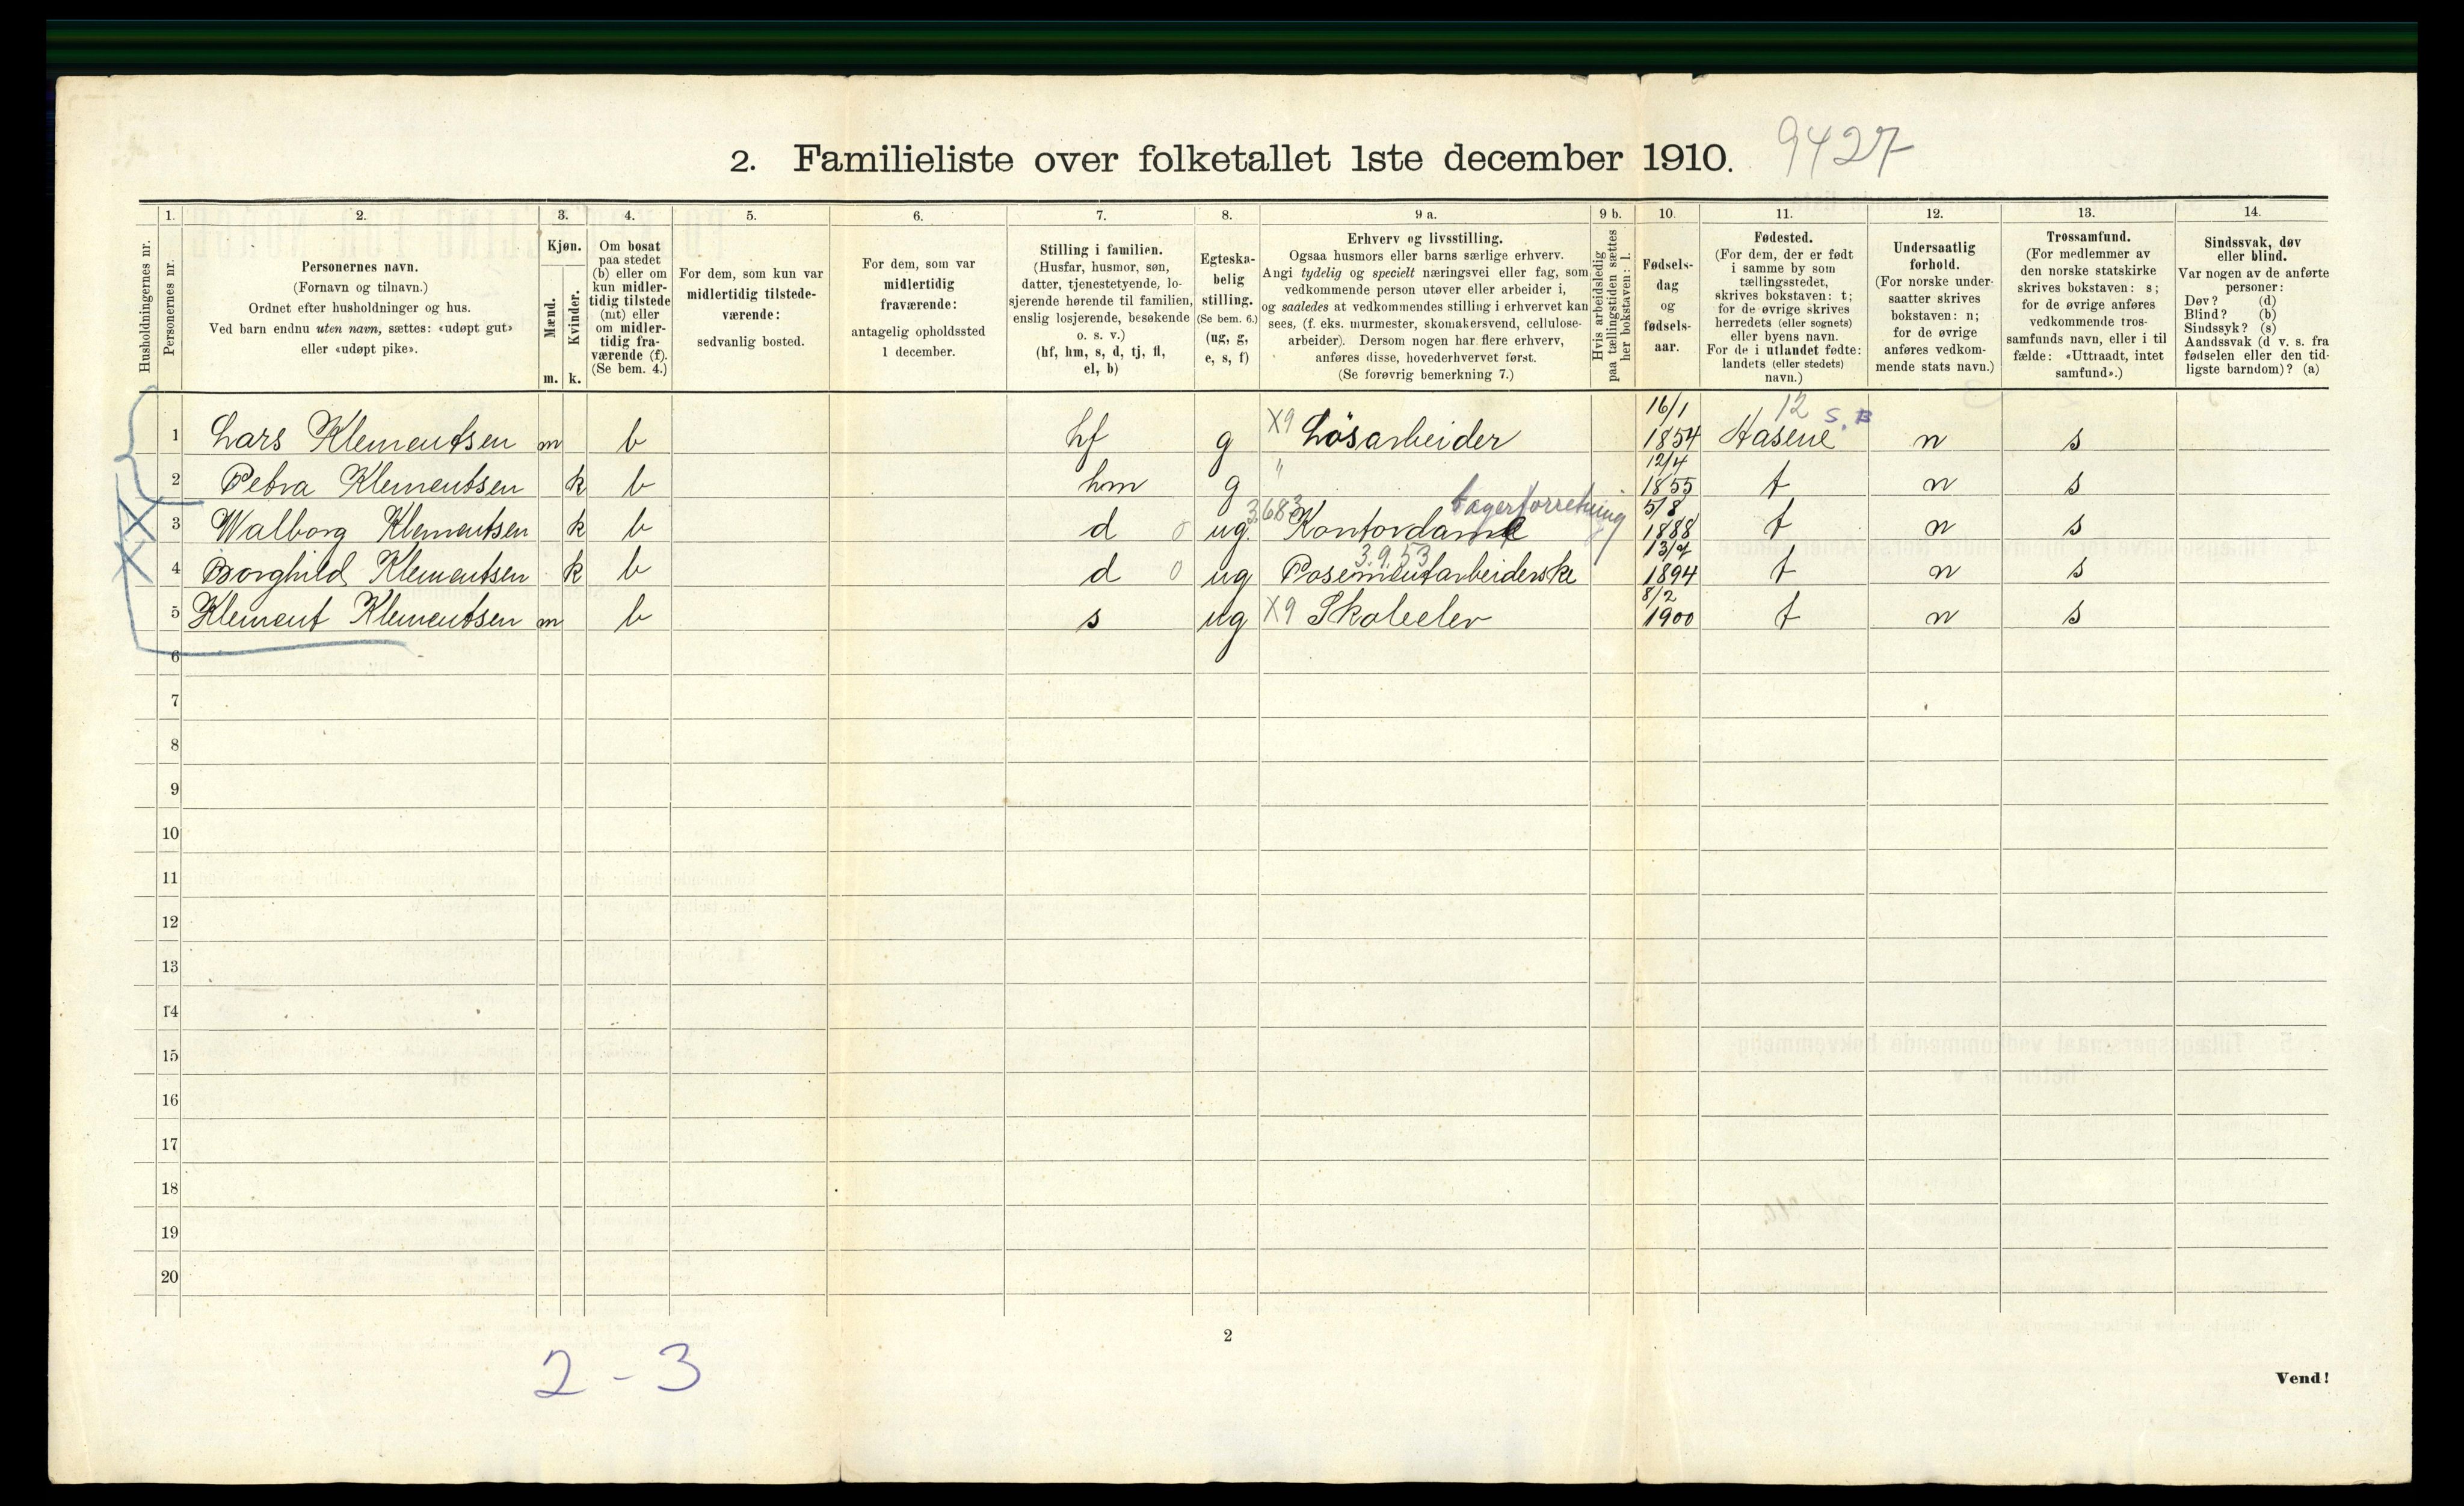 2. Familieliste over folketallet 1ste december 1910. 9427
Husholdningernes nr.
1. Personernes nr.
2. Personernes navn.
(Fornavn og tilnavn.)
Ordnet efter husholdninger og hus.
Ved barn endnu uten navn, sættes: «udøpt gut»
eller «udøpt pike».
3. Kjøn.
Mænd. m.
Kvinder. k.
4. Om bosat
paa stedet
(b) eller om
kun midler-
tidig tilstede
(mt) eller
om midler-
tidig fra-
værende (f).
(Se bem. 4.)
5. For dem, som kun var
midlertidig tilstede-
værende:
sedvanlig bosted.
6. For dem, som var
midlertidig
fraværende:
antagelig opholdssted
1 december.
7. Stilling i familien.
(Husfar, husmor, søn,
datter, tjenestetyende, lo-
sjerende hørende til familien,
enslig losjerende, besøkende
o. s. v.)
(hf, hm, s, d, tj, fl,
el, b)
8. Egteska-
belig
stilling.
(Se bem. 6.)
(ug, g,
e, s, f)
9 a. Erhverv og livsstilling.
Ogsaa husmors eller barns særlige erhverv.
Angi tydelig og specielt næringsvei eller fag, som
vedkommende person utøver eller arbeider i,
og saaledes at vedkommendes stilling i erhvervet kan
sees, (f. eks. murmester, skomakersvend, cellulose-
arbeider). Dersom nogen har flere erhverv,
anføres disse, hovederhvervet først.
(Se forøvrig bemerkning 7.)
9 b. Hvis arbeidsledig
paa tællingstiden sættes
her bokstaven: l.
10. Fødsels-
dag
og
fødsels-
aar.
11. Fødested.
(For dem, der er født
i samme by som
tællingsstedet,
skrives bokstaven: t;
for de øvrige skrives
herredets (eller sognets)
eller byens navn.
For de i utlandet fødte:
landets (eller stedets)
navn.)
12. Undersaatlig
forhold.
(For norske under-
saatter skrives
bokstaven: n;
for de øvrige
anføres vedkom-
mende stats navn.)
13. Trossamfund.
(For medlemmer av
den norske statskirke
skrives bokstaven: s;
for de øvrige anføres
vedkommende tros-
samfunds navn, eller i til-
fælde: «Uttraadt, intet
samfund».)
14. Sindssvak, døv
eller blind.
Var nogen av de anførte
personer:
Døv? (d)
Blind? (b)
Sindssyk? (s)
Aandssvak (d v. s. fra
fødselen eller den tid-
ligste barndom)? (a)
1 Lars Klementsen m b hf g X9 Løsarbeider 16/1 1854 12 S.B n s
2 Petra Klementsen k b hm g " 12/4 1855 t n s
3 Walborg Klementsen k b d 0 ug. 3683 Kontordame 5/8 1888 t n s
4 Borghild Klementsen k b d 0 ug 3.9.53 Posementarbeiderske 13/7 1894 t n s
5 Klement Klementsen m b s ug X9 Skoleelev 8/2 1900 t n s
6
7
8
9
10
11
12
13
14
15
16
17
18
19
20
2
2 - 3
Vend!